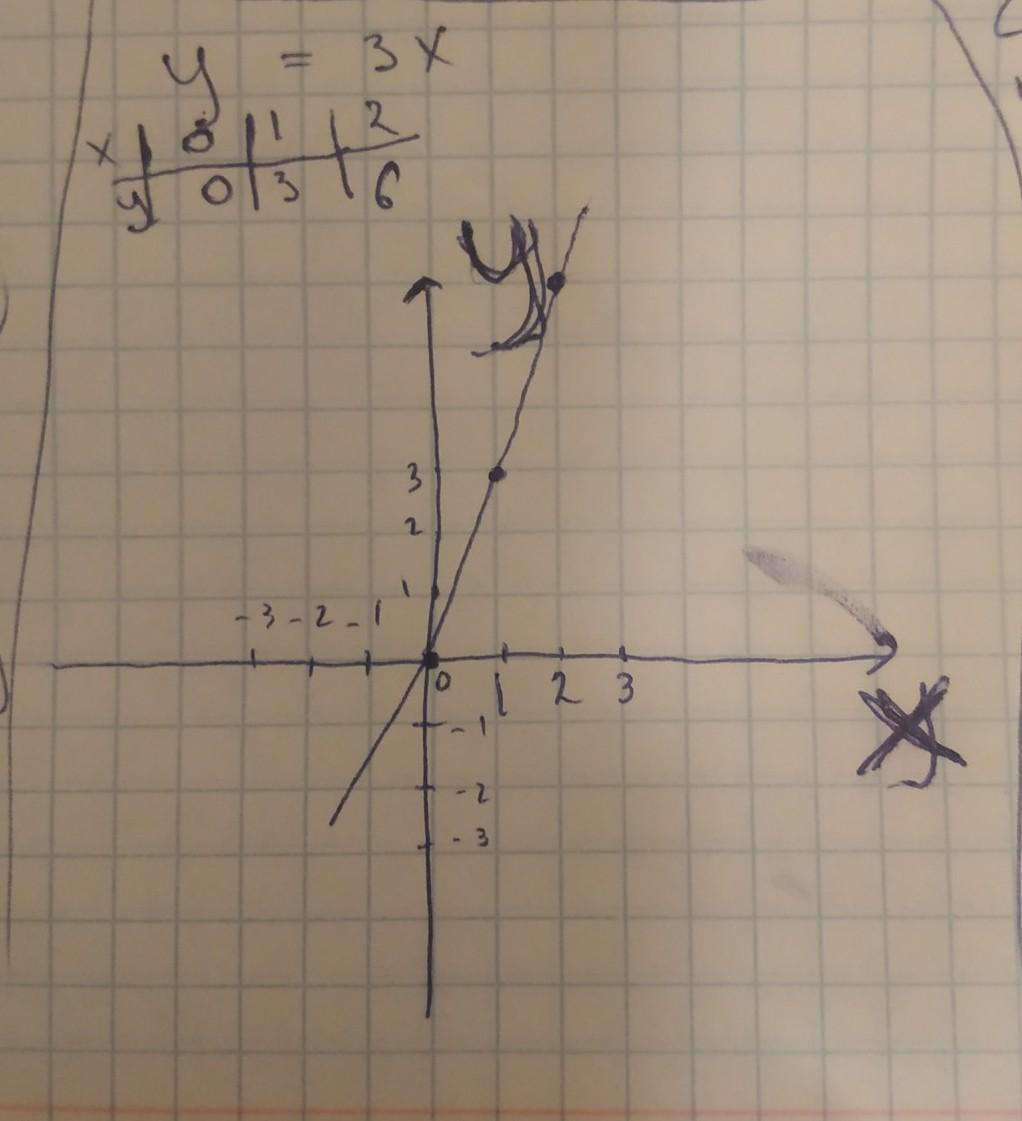 y = 3x
x | 0 | 1 | 2
y | 0 | 3 | 6
y
3
2
1
-3 -2 -1
0 1 2 3
x
-1
-2
-3